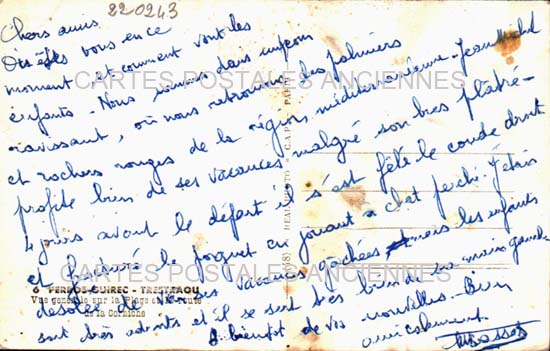 820243
Chers amis
Où êtes vous en ce
moment et comment vont les
enfants - Nous sommes dans un coin
ravissant, où nous retrouvons des palmiers
et rochers rouges de la région méditerranéenne - Jean Michel
profite bien de ses vacances malgré son bras plâtré -
4 jours avant le départ il s'est fêlé le coude droit
et fracturé le poignet en jouant à chat perché. J'étais
désolée de ses vacances gachées mais les enfants
sont très adroits et il se sert très bien de sa main gauche
A bientôt de vos nouvelles - Bien
amicalement.
CARTES POSTALES ANCIENNES
CARTES POSTALES ANCIENNES
6 PERROS-GUIREC - TRESTRAOU
Vue générale sur la Plage et la route
de la Corniche